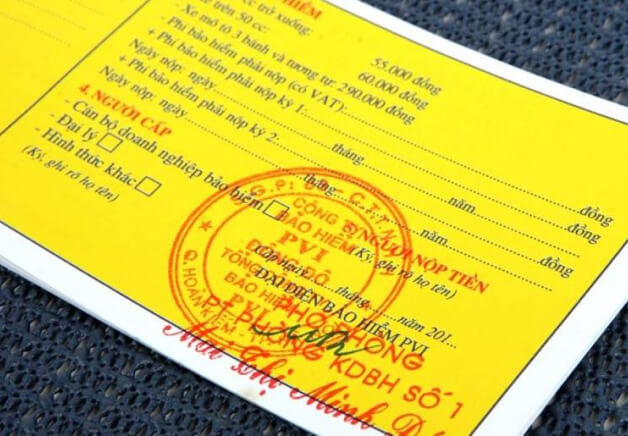 HIỂM
cc trở xuống: 55.000 đồng
trên 50 cc: 60.000 đồng
- Xe mô tô 3 bánh và tương tự: 290.000 đồng
+ Phí bảo hiểm phải nộp (có VAT):
+ Phí bảo hiểm phải nộp kỳ 1: đồng
Ngày nộp: ngày tháng năm
+ Phí bảo hiểm phải nộp kỳ 2: đồng
Ngày nộp: ngày tháng năm
4. NGƯỜI CẤP
- Cán bộ doanh nghiệp bảo hiểm
- Đại lý
- Hình thức khác
(Ký, ghi rõ họ tên)
NGƯỜI NỘP TIỀN
(Ký, ghi rõ họ tên)
ngày tháng năm 201...
ĐẠI DIỆN BẢO HIỂM PVI
CÔNG TY
BẢO HIỂM
PVI
ĐÔNG ĐÔ
TỔNG
BẢO HIỂM
PVI
Q. HOÀN KIẾM
PHÓ PHÒNG
PT BH KDBH SỐ 1
Mai Thị Minh